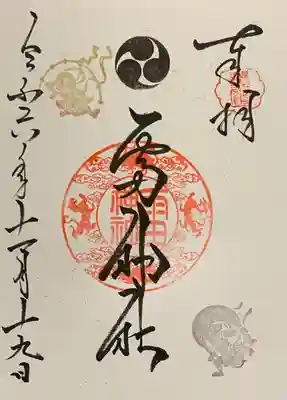 奉拝
雷神社
令和六年十一月十九日